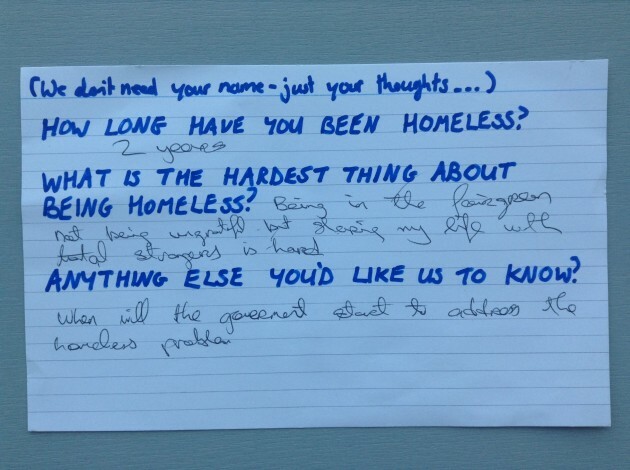 (We don't need your name - just your thoughts...)
HOW LONG HAVE YOU BEEN HOMELESS?
2 yeares
WHAT IS THE HARDEST THING ABOUT
BEING HOMELESS? Being in the fairgreen
not being ungratfl but sharing my life with
total stragers is hard
ANYTHING ELSE YOU'D LIKE US TO KNOW?
when will the goverment start to address the
homeless problem